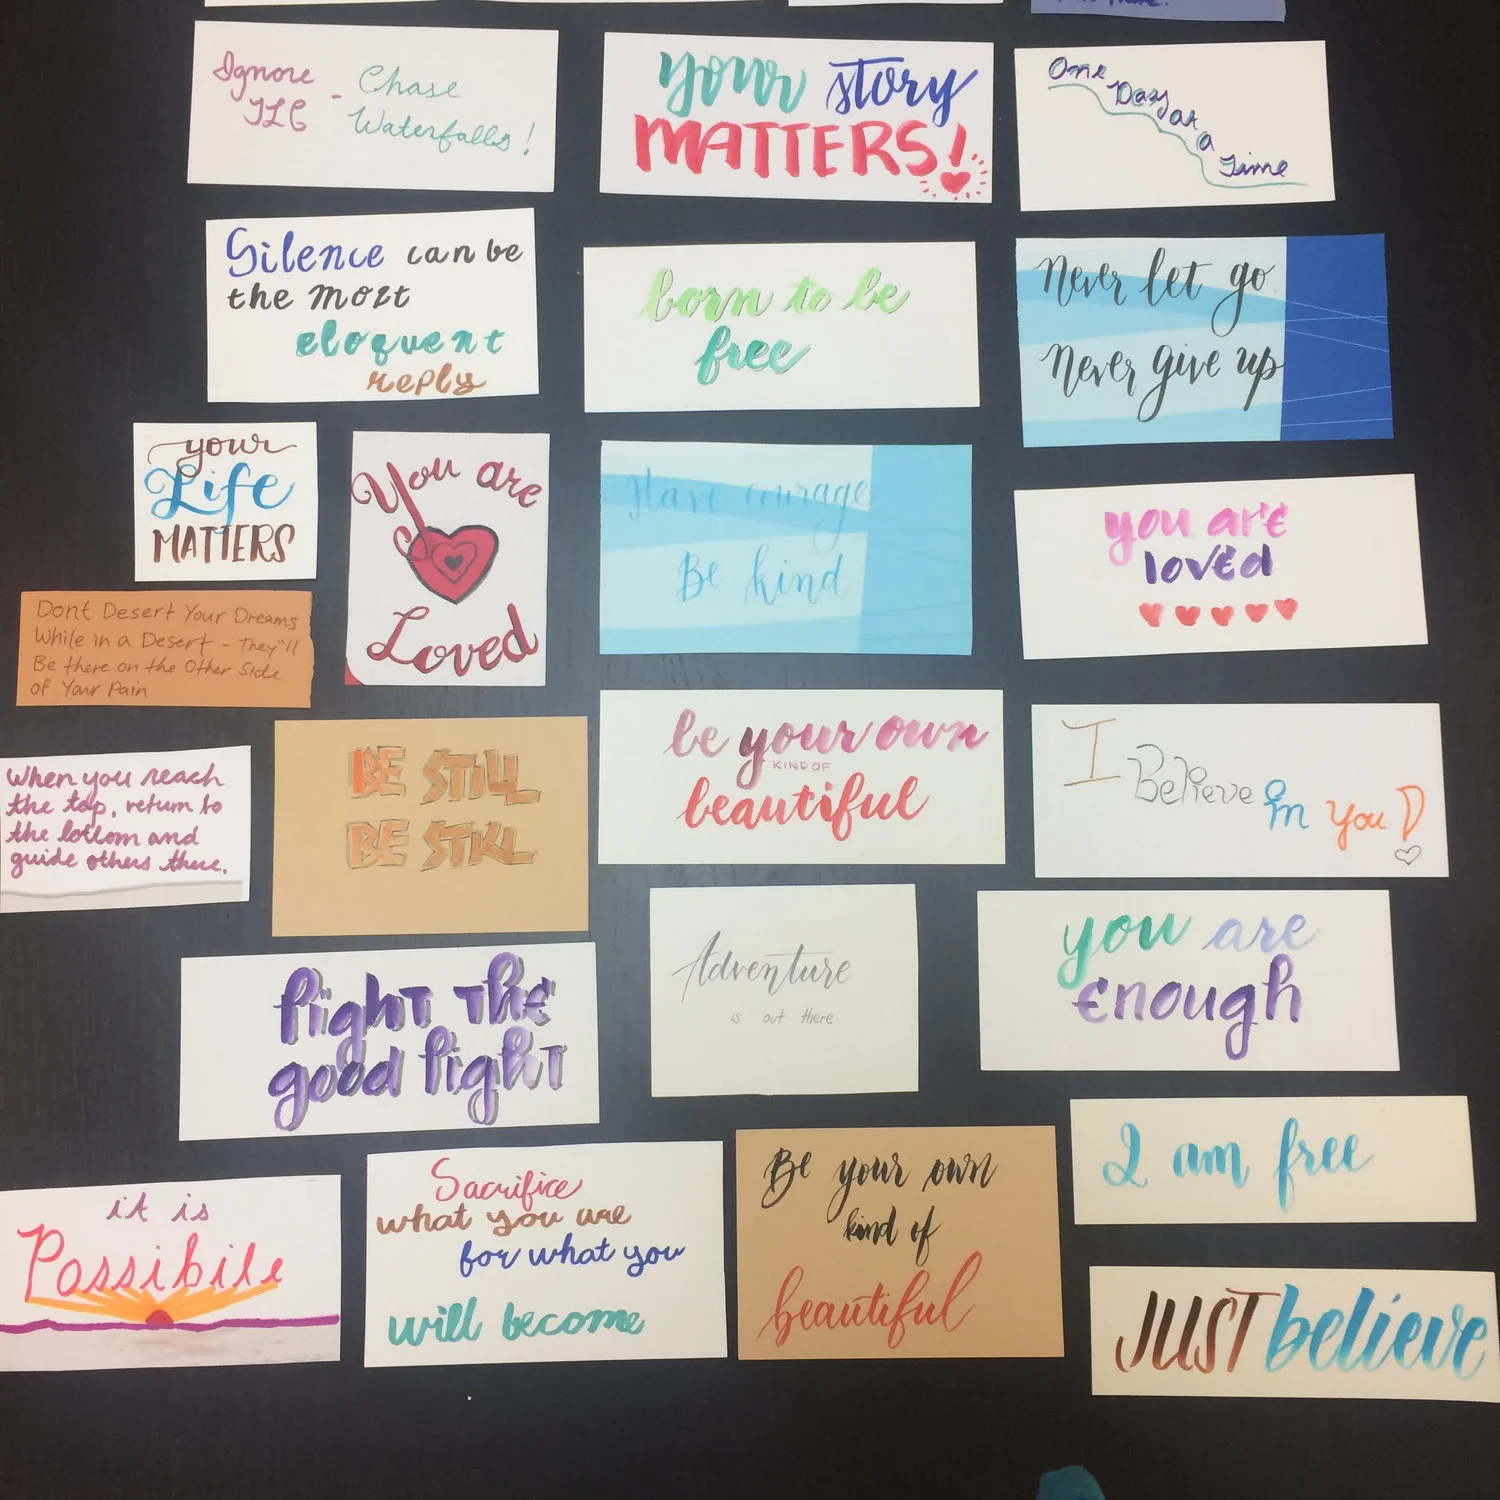 Ignore
TLC - Chase
Waterfalls!
your story
MATTERS!
One
Day
at
a
Time
Silence can be
the most
eloquent
reply
born to be
free
Never let go
Never give up
your
Life
MATTERS
You are
Loved
Have courage
Be kind
you are
loved
Dont Desert Your Dreams
While in a Desert - They'll
Be there on the Other Side
of Your Pain
When you reach
the top, return to
the bottom and
guide others there.
BE STILL
BE STILL
be your own
KIND OF
beautiful
I Believe in You!
fight the
good fight
Adventure
is out there
you are
enough
it is
Possibile
Sacrifice
what you are
for what you
will become
Be your own
kind of
beautiful
I am free
JUST believe